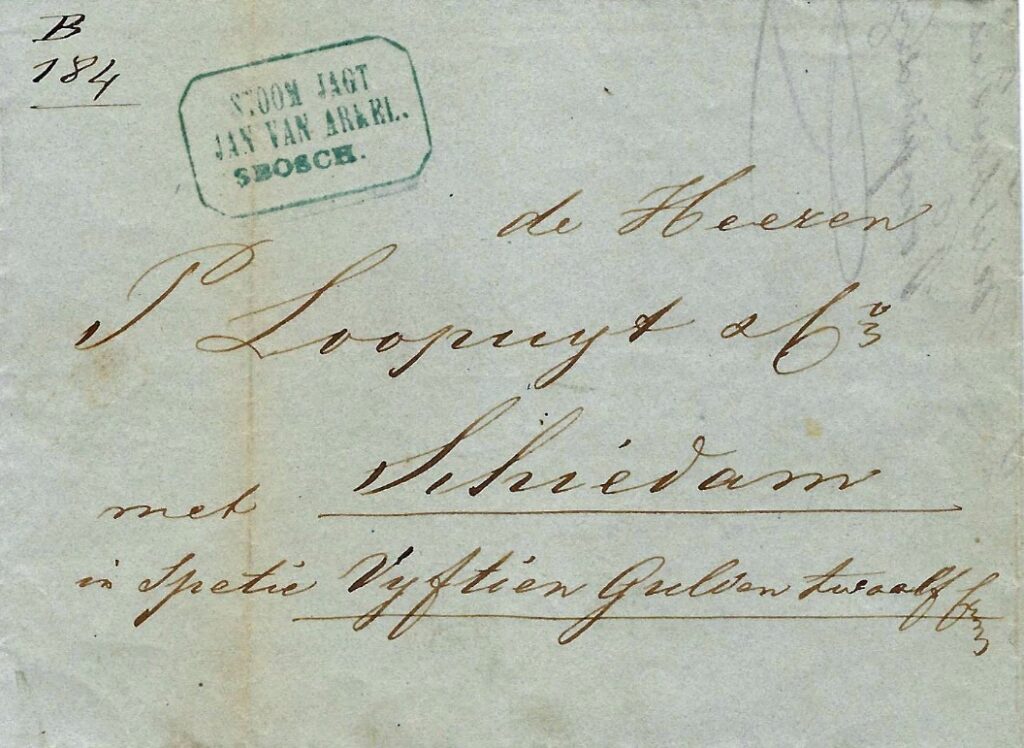 B
184
STOOM JAGT
JAN VAN ARKEL.
SBOSCH.
de Heeren
P Loopuyt & Co
Schiedam
met
in Spetie Vyftien Gulden twaalf